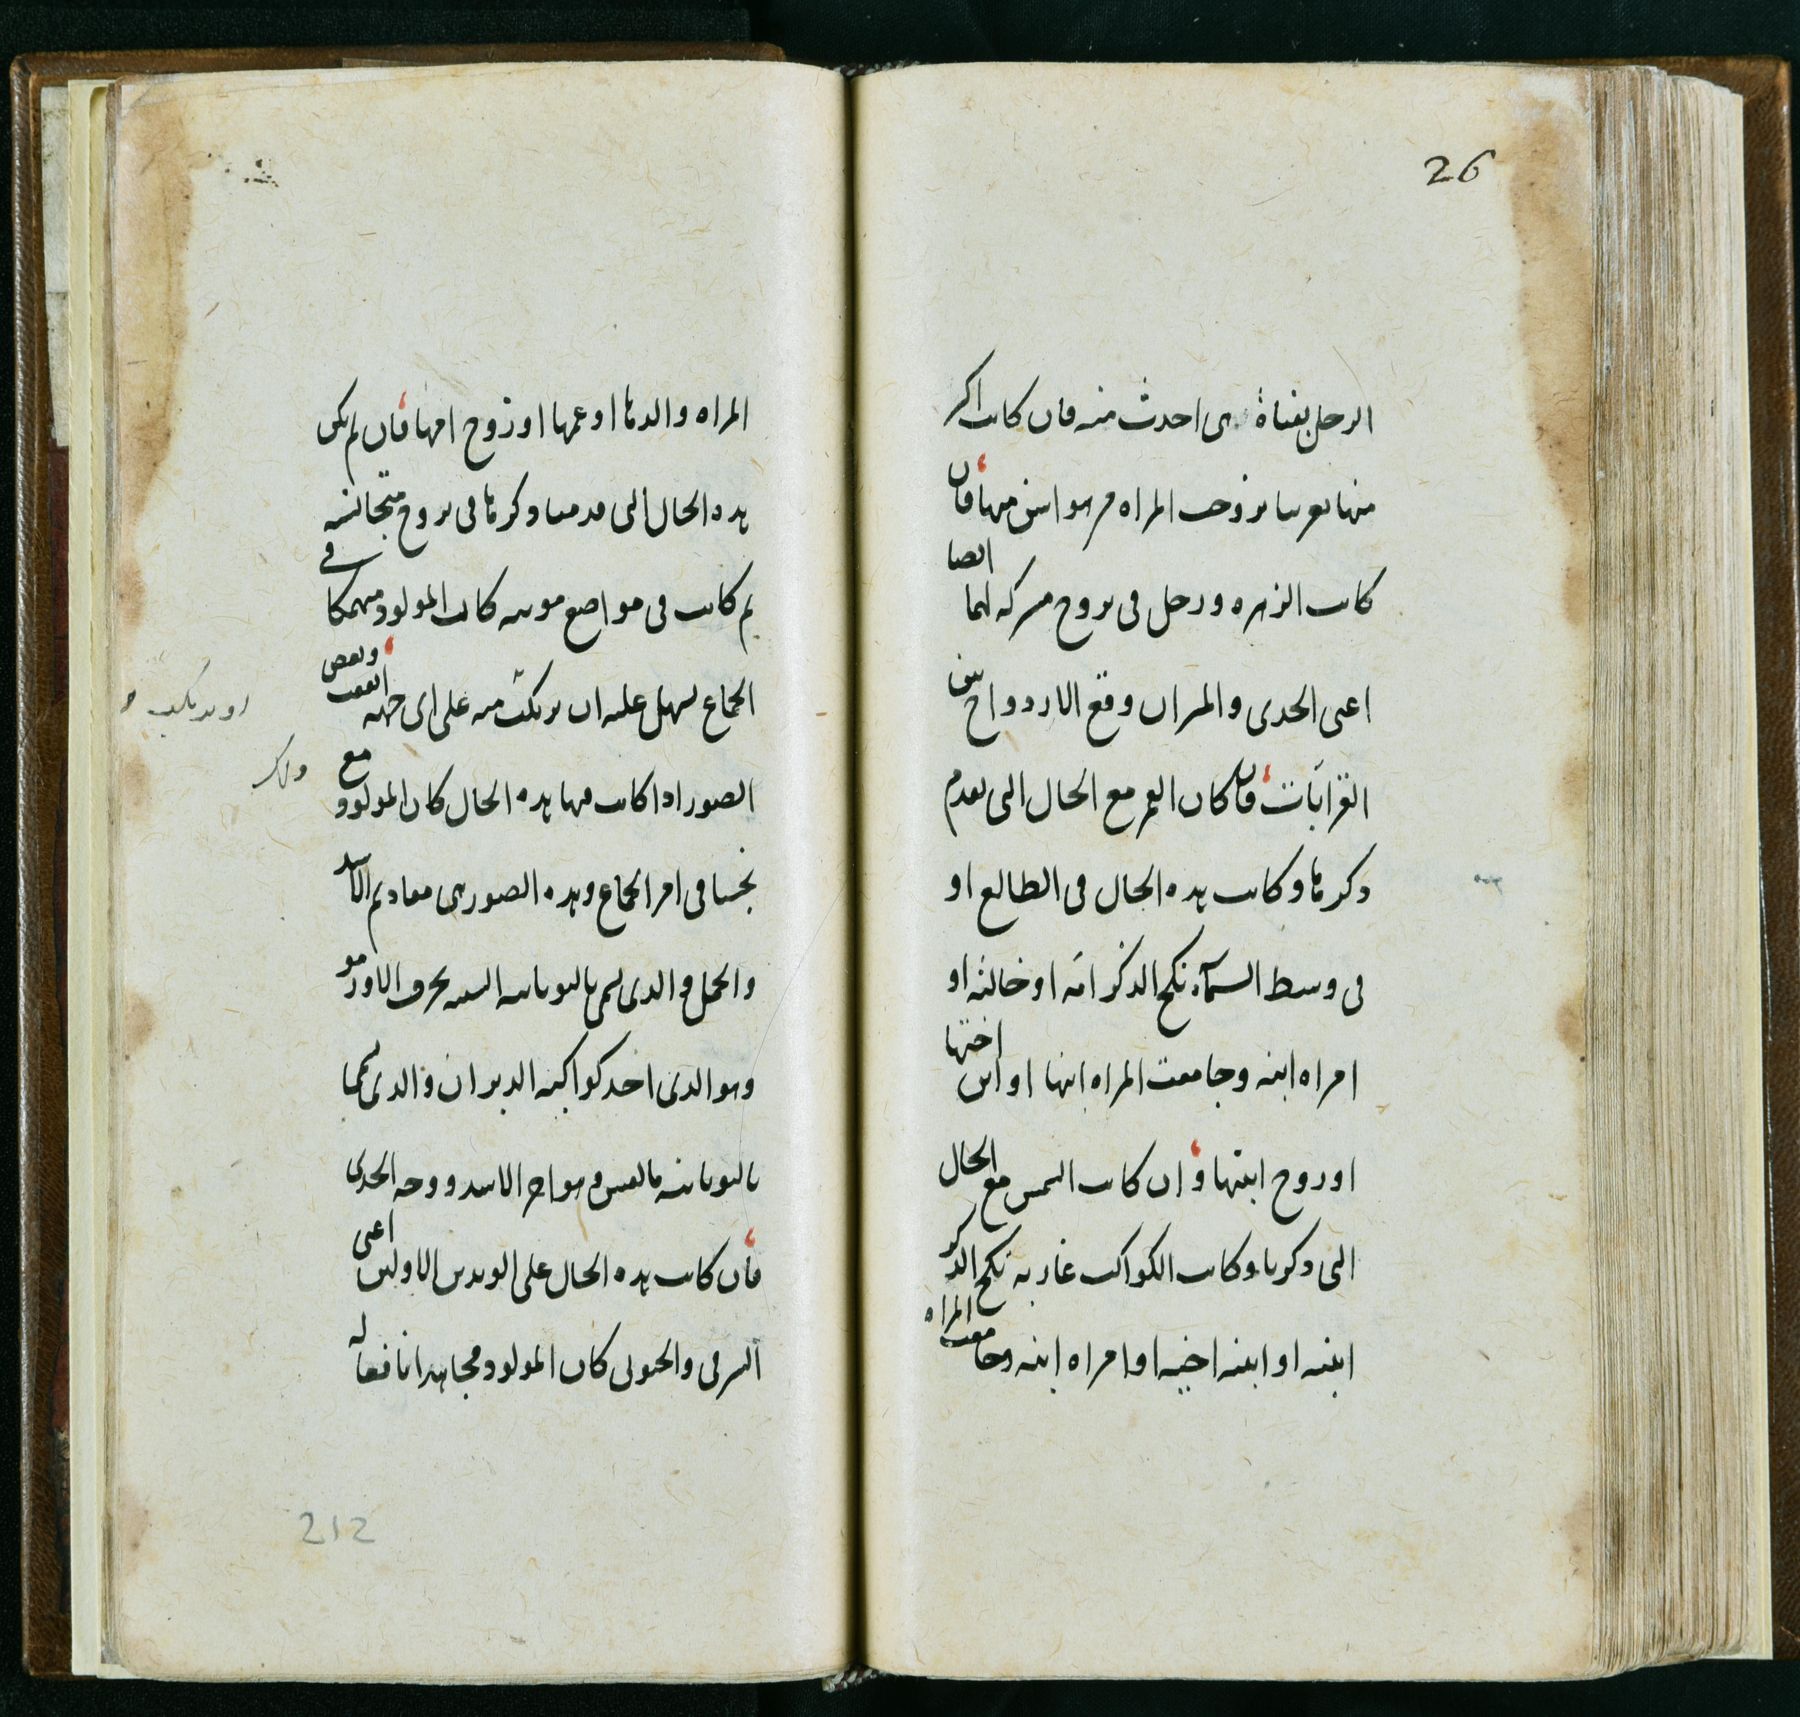 26
الرجل بفتاة هى احدث منه فان كانت اكبر
منها بعريبا تزوجت المراه من هو اسن منها فان
كانت الزهره وزحل فى بروج مشركه لهما ايضا
اعنى الجدى والميزان وقع الازدواج بين
القرابات فان كان القمر مع الحال التى تقدم
ذكرنا وكانت هذه الحال فى الطالع او
فى وسط السماء نكح الذكر امه او خالته او
امراه ابيه وجامعت المراه ابنها او ابن اختها
او زوج ابنتها وان كانت الشمس مع الحال
التى ذكرنا وكانت الكواكب غاربه نكح الذكر
ابنته او ابنه اخيه او امراه ابنه وجامعت المراه
المراه والدها او عمها او زوج امها فان لم تكن
هذه الحال التى قدمنا ذكرها فى بروج متجانسه
ثم كانت فى مواضع مونثه كانت المولود منهمكا فى
الجماع يسهل عليه ان يرتكب منه على اى جهه اتفقت وبعض
الصور اذا كانت فيها هذه الحال كان المولود مع
نجسا فى امر الجماع وهذه الصور هى مقاديم الاسد
والحمل والذى يسمى باليونانيه
وهو الذى احد كواكبه الدبران والذى يسمى
باليونانيه وهو اخر الاسد ووجه الجدى
فان كانت هذه الحال على الوتدين الاولين اعنى
الشرقى والجنوبى كان المولود مجاهدا نافعا له
212